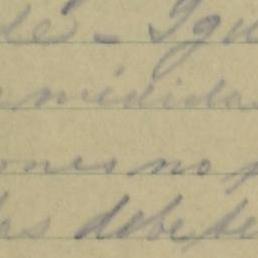 de - Igu
medida
ones no p
las debe de